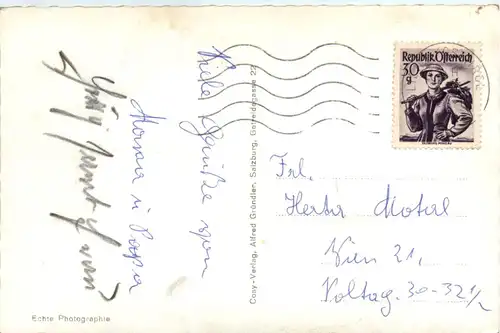 Viele Grüße von
Mama u Papa
Cosy-Verlag, Alfred Gründler, Salzburg, Getreidegasse 22
Echte Photographie
Republik Österreich
30
g
Frl.
Herta Motal
Wien 21,
Voltag. 30-32 1/2